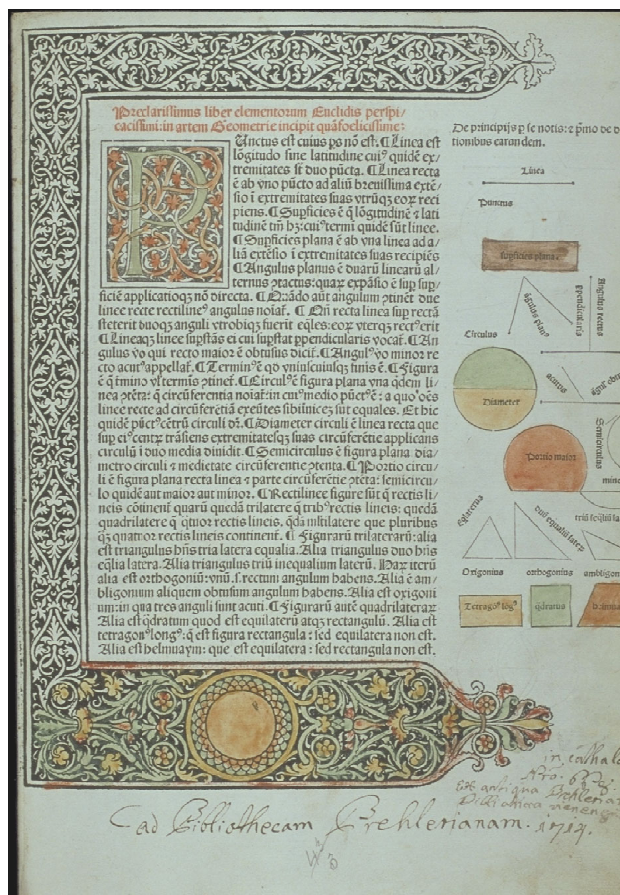 Preclarissimus liber elementorum Euclidis perspi-
cacissimi: in artem Geometrie incipit quãfoelicissime:
Punctus est cuius ps nõ est. ¶ Linea est
lõgitudo sine latitudine cui⁹ quidẽ ex-
tremitates sũt duo pũcta. ¶ Linea recta
ẽ ab vno pũcto ad aliũ breuissima extẽ-
sio ĩ extremitates suas vtrũqꝫ eoꝝ reci
piens. ¶ Supficies ẽ q̃ lõgitudinẽ ⁊ lati
tudinẽ tm̃ hꝫ: cui⁹ termi quidẽ sũt linee.
¶ Supficies plana ẽ ab vna linea ad a-
liã extẽsio ĩ extremitates suas recipiẽs
¶ Angulus planus ẽ duarũ linearũ al-
ternus ꝯtactus: quaꝝ expãsio ẽ sup sup-
ficiẽ applicatioqꝫ nõ directa. ¶ Qũado aut angulum ꝯtinet due
linee recte rectiline⁹ angulus noiat̃. ¶ Qñ recta linea sup rectã
steterit duoqꝫ anguli vtrobiqꝫ fuerit eq̃les: eoꝝ vterqꝫ rect⁹ erit
¶ Lineaqꝫ linee supstãs ei cui supstat ppendicularis vocat̃. ¶ An
gulus vo qui recto maior ẽ obtusus dicit̃. ¶ Angul⁹ vo minor re
cto acut⁹ appellat̃. ¶ Termin⁹ ẽ qd vniuscuiusqꝫ finis ẽ. ¶ Figura
ẽ q̃ tmino vl terminis ꝯtinet̃. ¶ Circul⁹ ẽ figura plana vna qdem li-
nea ꝯtẽta: q̃ circũferentia noiat̃: in cui⁹ medio pũct⁹ ẽ: a quo oẽs
linee recte ad circũferẽtiã exeũtes sibiinuicẽ sũt equales. Et hic
quidẽ pũct⁹ cẽtrũ circuli dr̃. ¶ Diameter circuli ẽ linea recta que
sup ei⁹ centꝝ trãsiens extremitatesqꝫ suas circũferẽtie applicans
circulũ ĩ duo media diuidit. ¶ Semicirculus ẽ figura plana dia-
metro circuli ⁊ medietate circũferentie ꝯtenta. ¶ Portio circu-
li ẽ figura plana recta linea ⁊ parte circũferẽtie ꝯtẽta: semicircu-
lo quidẽ aut maior aut minor. ¶ Rectilinee figure sũt q̃ rectis li-
neis cõtinent̃ quarũ quedã trilatere q̃ trib⁹ rectis lineis: quedã
quadrilatere q̃ q̃tuor rectis lineis. qdã mltilatere que pluribus
qꝫ quatuor rectis lineis continent̃. ¶ Figurarũ trilaterarũ: alia
est triangulus hñs tria latera equalia. Alia triangulus duo hñs
eq̃lia latera. Alia triangulus triũ inequalium laterũ. Haꝝ iterũ
alia est orthogoniũ: vnũ .s. rectum angulum habens. Alia ẽ am-
bligonium aliquem obtusum angulum habens. Alia est oxigoni
um: in qua tres anguli sunt acuti. ¶ Figurarũ autẽ quadrilateraꝝ
Alia est q̃dratum quod est equilaterũ atqꝫ rectangulũ. Alia est
tetragon⁹ long⁹: q̃ est figura rectangula: sed equilatera non est.
Alia est helmuaym: que est equilatera: sed rectangula non est.
De principijs p se notis: ⁊ pmo de d
tionibus earundem.
Linea
Punctus
supficies plana
ãgulus plan⁹
ppendicularis
Angulus rectus
Circulus
Diameter
acutus
ãgul⁹ obt
Portio maior
Semicirculus
mino
Eqlaterus
duũ equaliũ laterũ
triũ ĩeq̃liũ la
Oxigonius
orthogonius
ambligon
Tetragõ⁹ lõg⁹
qdratus
ad Bibliothecam Prehlerianam. 1714.